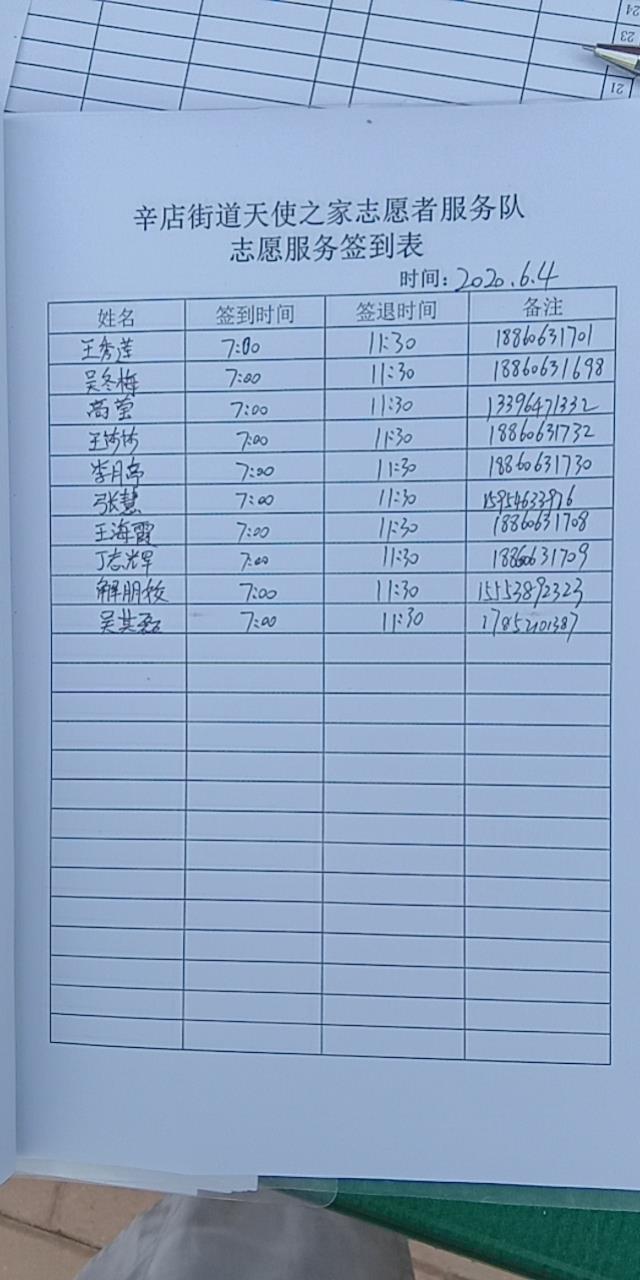 24
23
21
辛店街道天使之家志愿者服务队
志愿服务签到表
时间：2020.6.4
姓名 签到时间 签退时间 备注
王秀莲 7:00 11:30 18860631701
吴冬梅 7:00 11:30 18860631698
高莹 7:00 11:30 13396471332
王娇娇 7:00 11:30 18860631732
李月亭 7:00 11:30 18860631730
张慧 7:00 11:30 15954633976
王海霞 7:00 11:30 18860631708
丁志军 7:00 11:30 18860631709
解朋姣 7:00 11:30 15553892323
吴其磊 7:00 11:30 17852101387